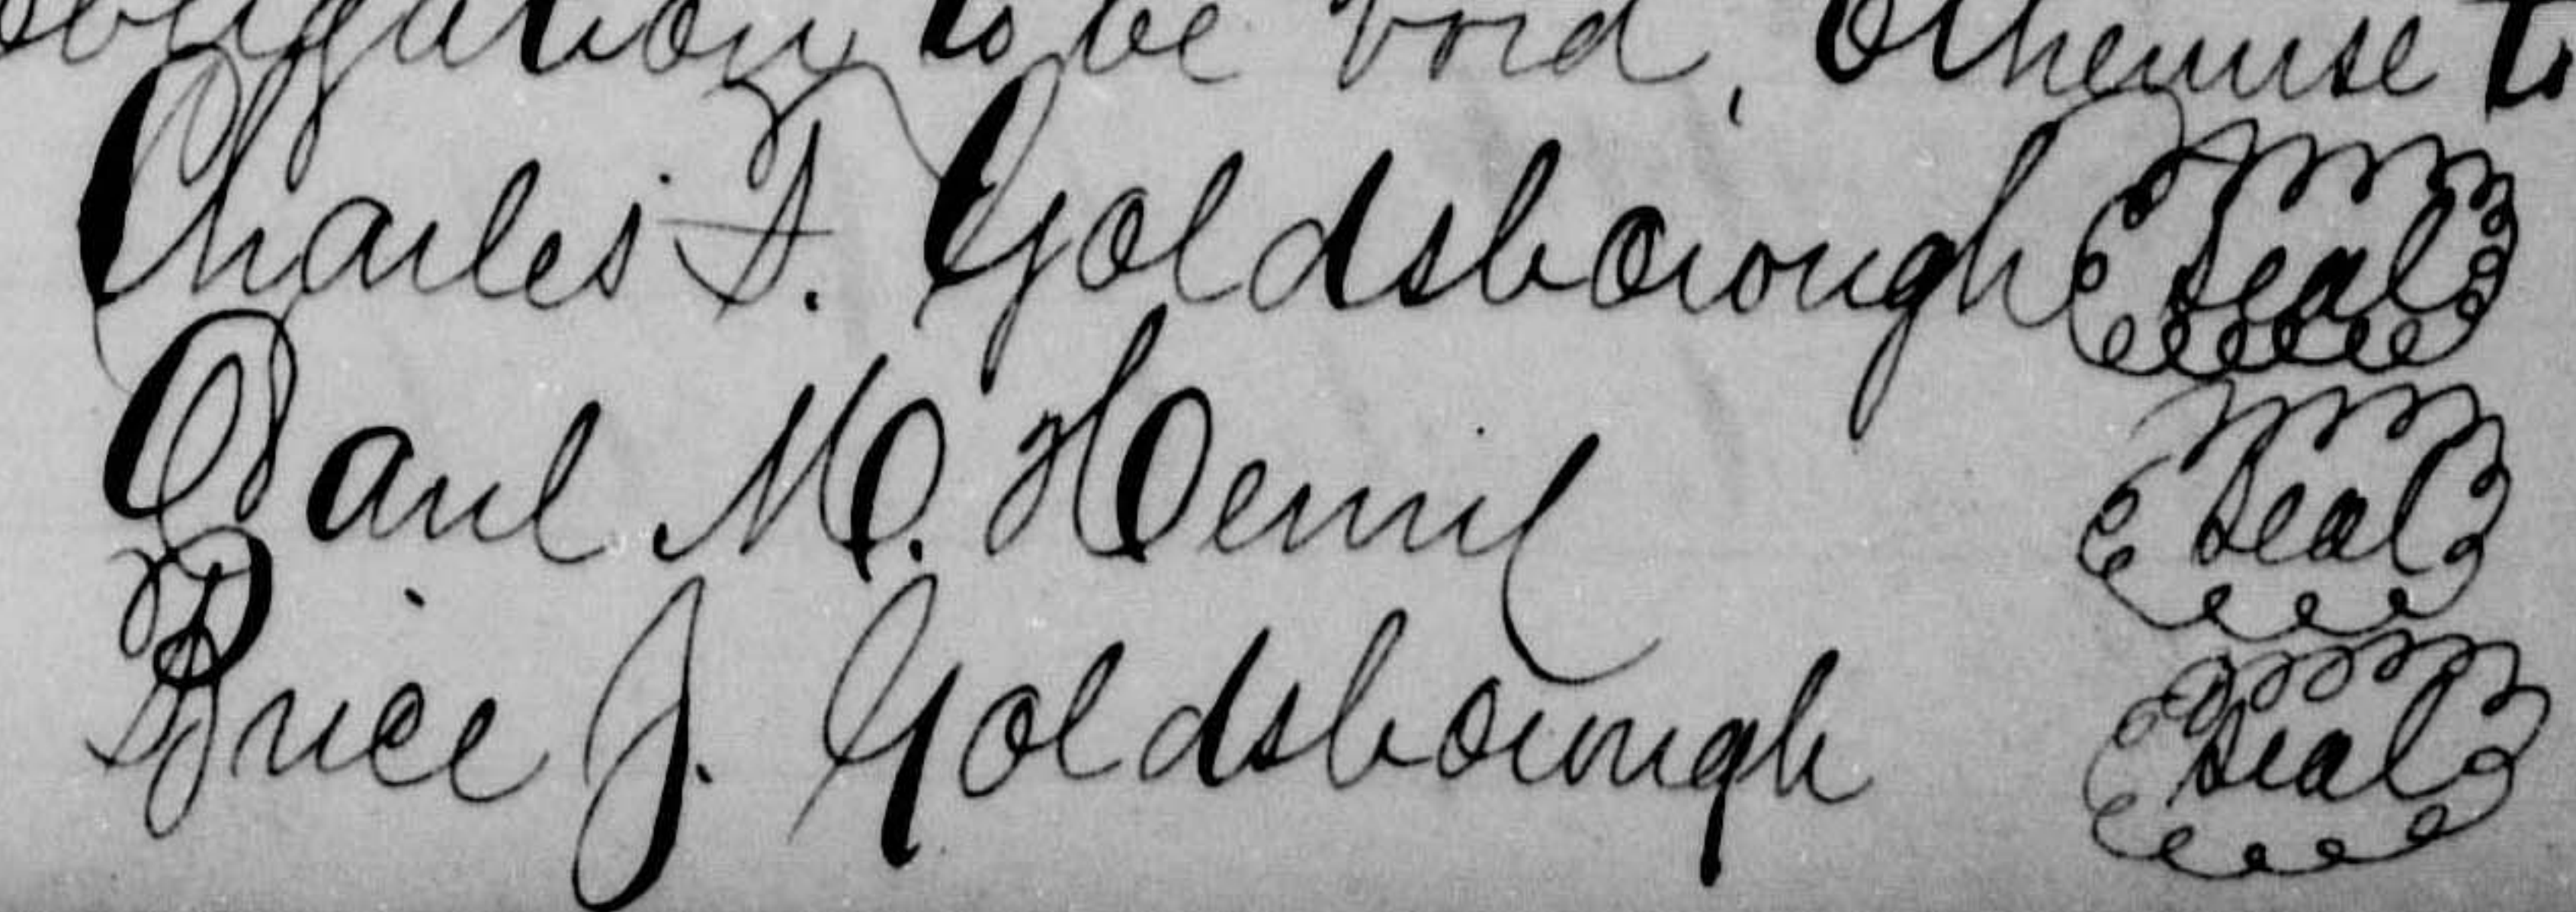 obligation to be void, Otherwise to
Charles F. Goldsborough Seal
Paul M. Seal
Brice J. Goldsborough Seal